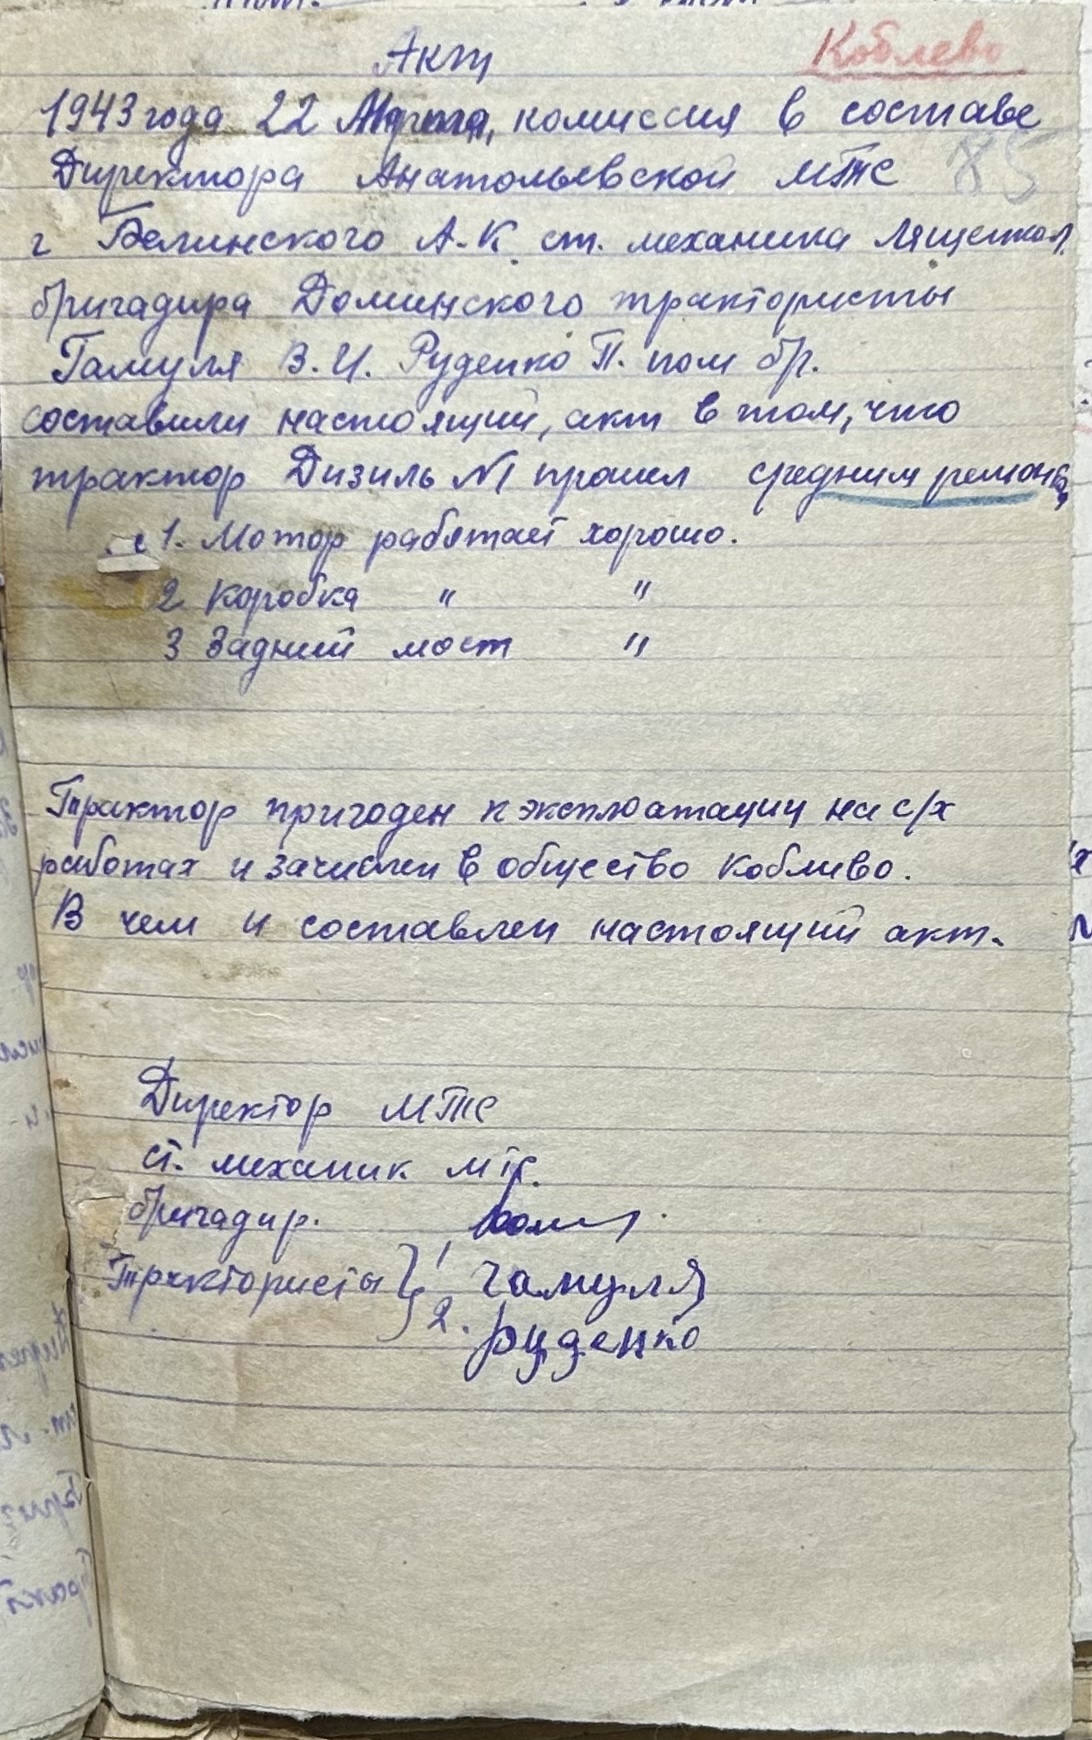 Акт
Коблево
1943 года 22 Марта, комиссия в составе
Директора Анатольевской МТС
85
г Белинского А.К. ст. механика Лященко Л.
бригадира Доминского трактористы
Гамуля В.И. Руденко П. пом бр.
составили настоящий, акт в том, что
трактор Дизиль №1 прошел средним ремонтом
1. Мотор работает хорошо.
2 Коробка " "
3 Задний мост "
Трактор пригоден к эксплоатации на с/х
работах и зачислен в общество Кобливо.
В чем и составлен настоящий акт.
Директор МТС
ст. механик мтс.
бригадир.
Трактористы } 1 Гамуля
2. Руденко